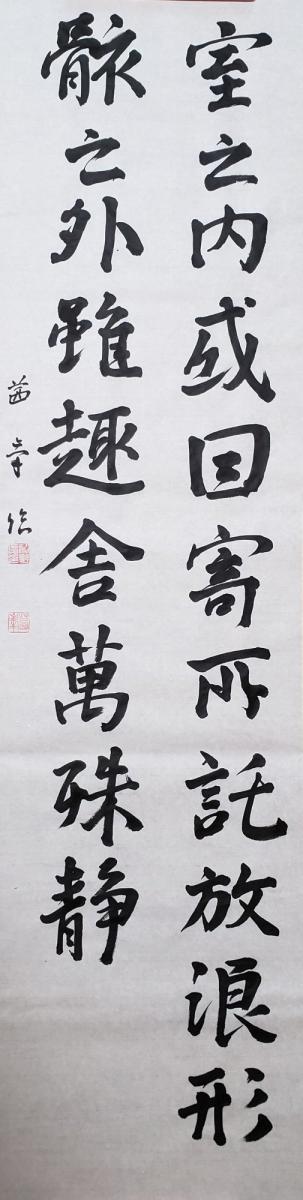 室之内或因寄所託放浪形
骸之外雖趣舎萬殊静